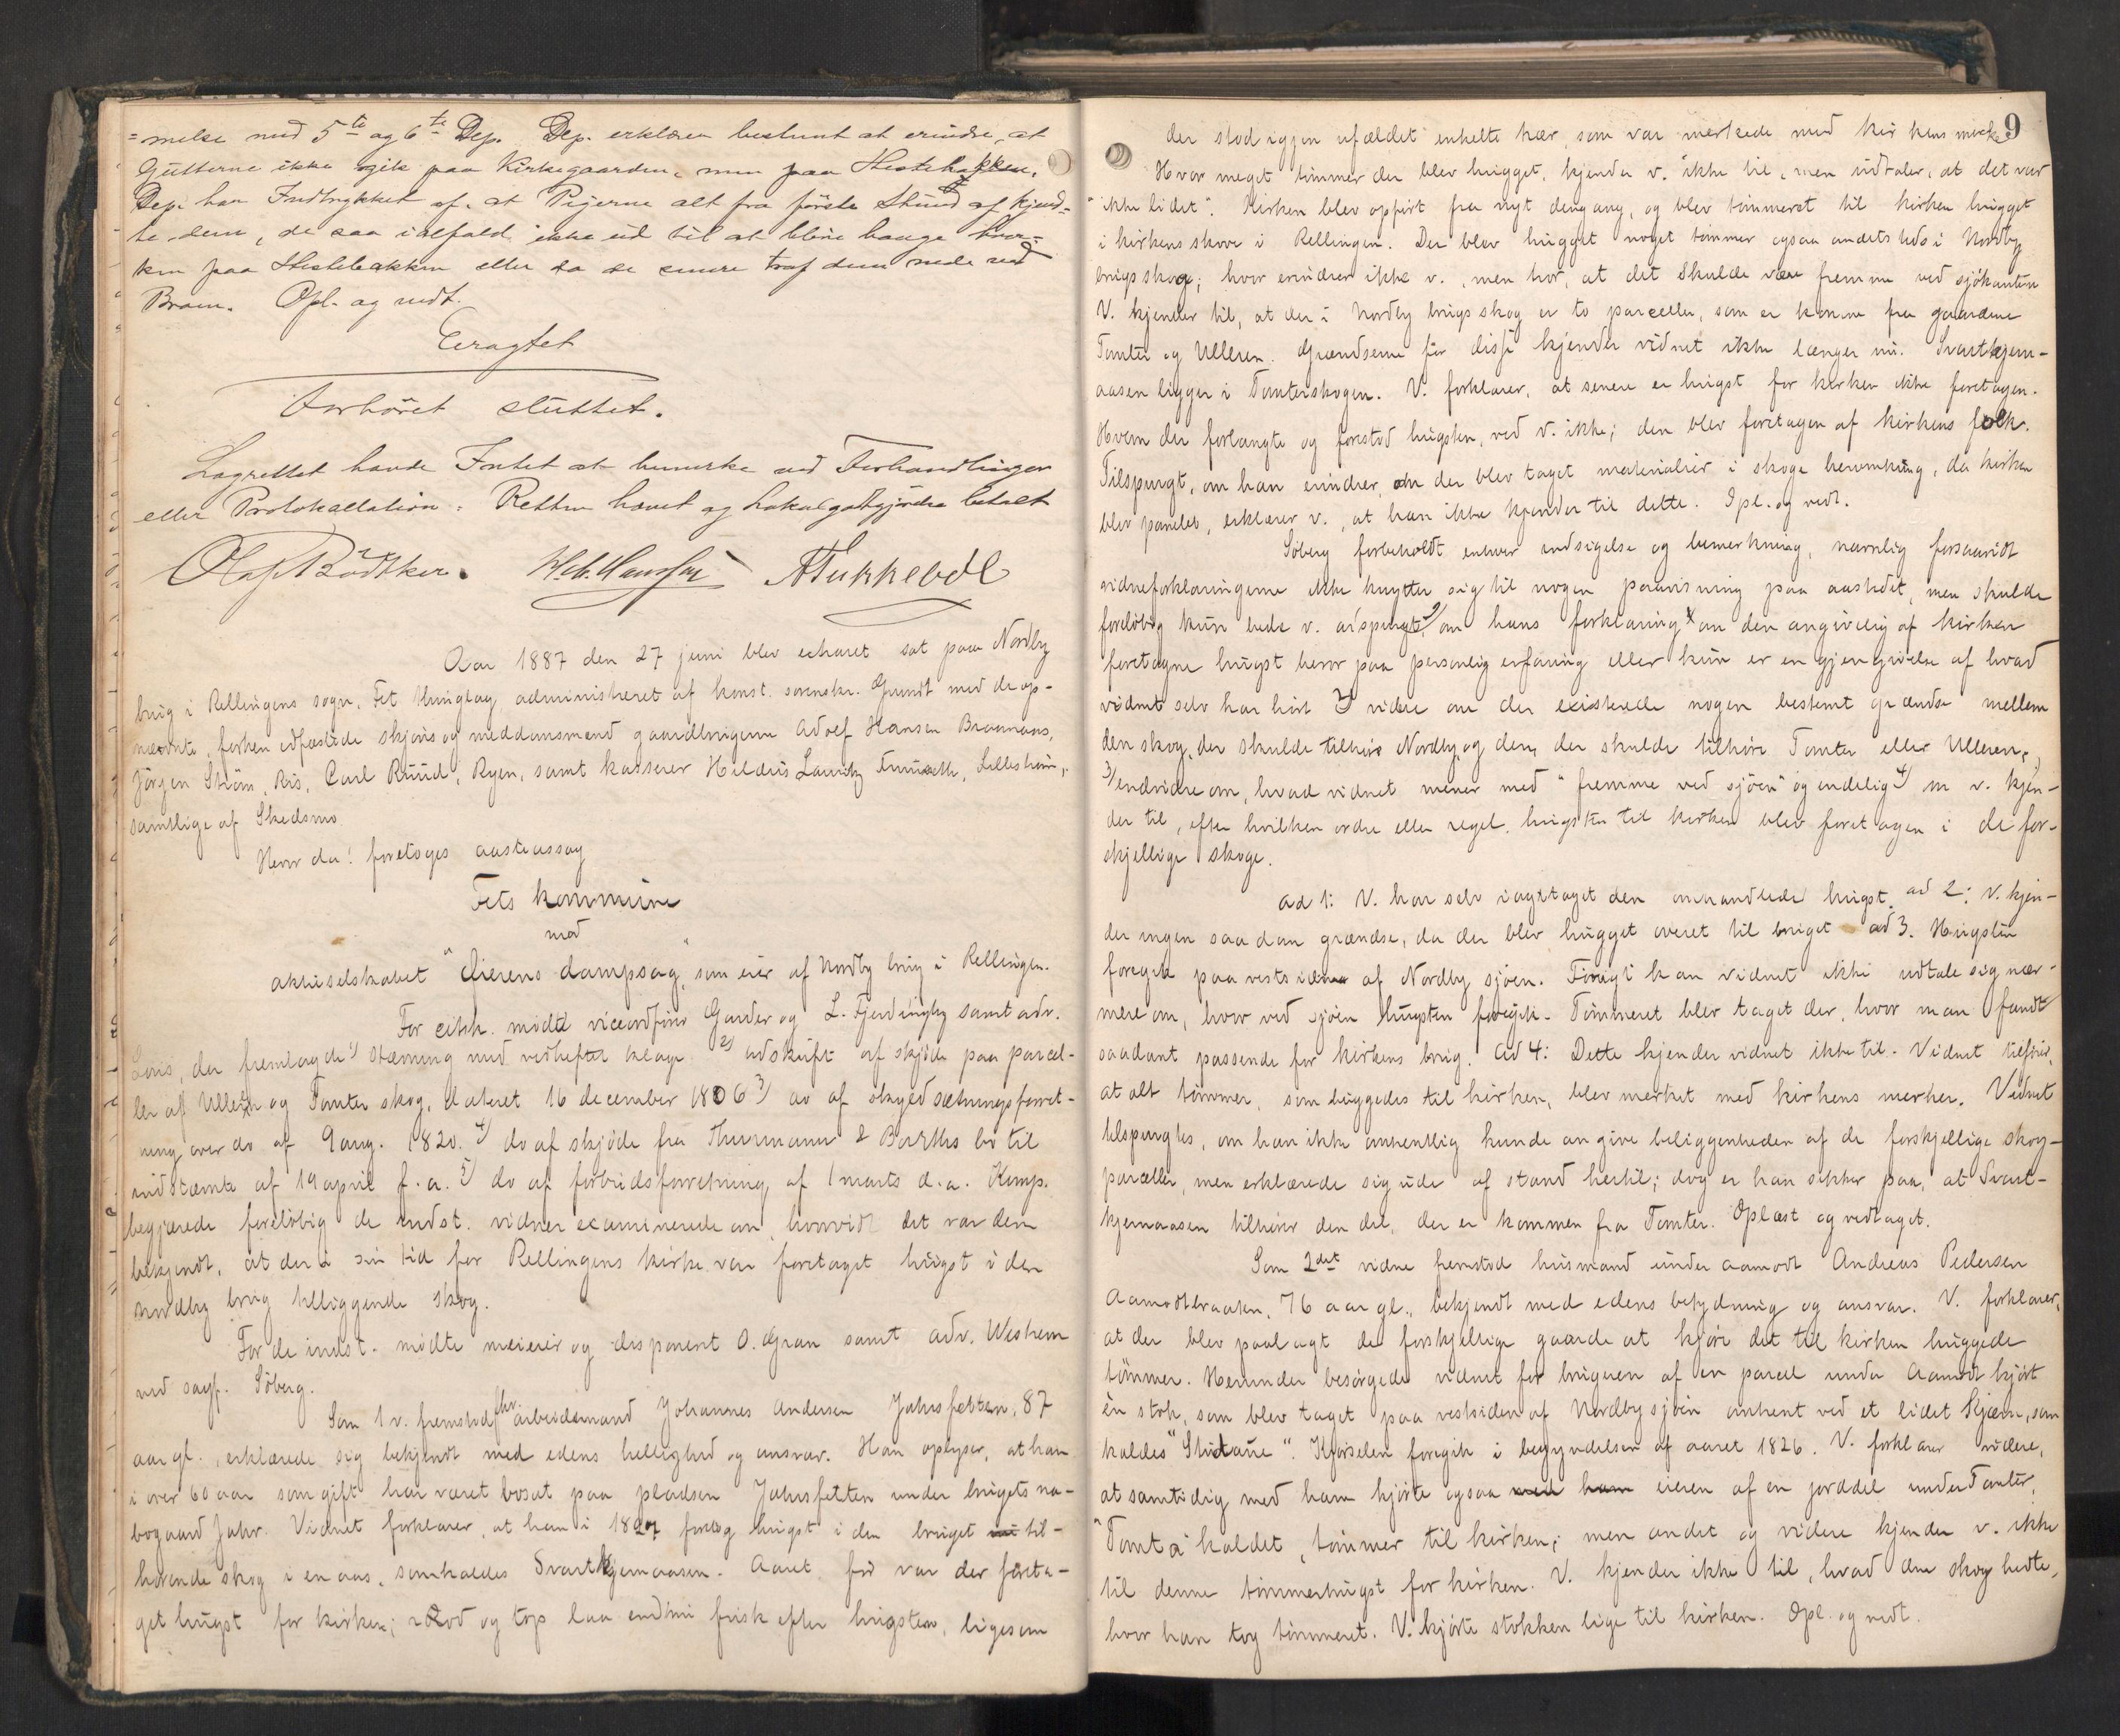 =melse med 5te og 6te Dep. Dep. erklærer bestemt at erindre, at
Gutterne ikke gik paa Kirkegaarden, men paa Hestebakken.
Dep. har Indtrykket af, at Pigerne alt fra første Stund af kjend=
te dem, de saa ialfald ikke ud til at blive bange hver=
ken paa Hestebakken eller da de senere traf dem nede ved
Broen. Opl. og vedt.
Eragtet
Forhøret sluttet.
Lagrettet havde Intet at bemerke ved Forhandlingen
eller Protokollation. Retten hævet og Lokalgodtgjørelse betalt
Olaf Bödtker.
Aar 1887 den 27 juni blev extraret sat paa Nordby
brug i Rellingens sogn, Fet thinglag administreret af konst. sorenskr. Grundt med de op-
nævnte, forhen edfæstede skjøns og meddomsmænd gaardbrugerne Adolf Hansen Braanaas,
Jørgen Strøm, Ris, Carl Ruud, Ryen, samt kasserer Lillestrøm,
samtlige af Skedsmo.
Hvor da: foretoges aasteassag
Fets kommune
mod
aktieselskabet "Øierens dampsag", som eier af Nordby brug i Rellingen.
For citk. mødte viceordfører Garder og L. Fjerdingby samt adv.
der fremlagde 1) stævning med vedheftet klage 2) udskrift af skjøde paa parcel-
ler af Ulleren og Tomter skog, dateret 16 december 1806 3) do af skyldsætningsforret-
ning over do af 9 aug. 1820. 4) do af skjøde fra Thurmann & bo til
indstævnte af 19 april f.a. 5) do af forbudsforretning af 1 marts d.a. Komp.
begjærede foreløbig de indst. vidner examinerede om, hvorvidt det var dem
bekjendt, at der i sin tid for Rellingens kirke var foretaget hugst i den
nordby brug tilliggende skog.
For de indst. mødte meieier og disponent O. Gran samt adv. Weshem
ved sagf. Söberg.
Som 1 v. fremstod fhv. arbeidsmand Johannes Andersen Jahrsfetten, 87
aar gl., erklærede sig bekjendt med edens hellighed og ansvar. Han oplyser, at han
i over 60 aar som gift har været bosat paa pladsen Jahrsfetten under brugets na-
bogaard Jahr. Vidnet forklarer, at han i 1827 foretog hugst i den bruget nu til-
hørende skog i en aas, som kaldes Svartkjernaasen. Aaret før var der foreta-
get hugst for kirken; rod og top laa endnu frisk efter hugsten, ligesom
9
der stod igjen ufældet enkelte trær, som var merkede med kirkens merke.
Hvor meget tømmer der blev hugget, kjender v. ikke til, men udtaler, at det var
"ikke lidet". Kirken blev opført fra nyt dengang, og blev tømmeret til kirken hugget
i kirkens skove i Rellingen. Der blev hugget noget tømmer ogsaa andetsteds i Nordby
brugs skog; hvor erindrer ikke v., men tror, at det skulde være fremme ved sjøkanten
V. kjender til, at der i Nordby brugs skog er to parceller, som er komne fra gaardene
Tomter og Ulleren. Grændserne for disse kjender vidnet ikke længer nu. Svartkjern-
aasen ligger i Tomterskogen. V. forklarer, at senere er hugst for kirken ikke foretagen.
Hvem der forlangte og forestod hugsten, ved v. ikke; den blev foretagen af kirkens folk.
Tilspurgt, om han erindrer, om der blev taget materialier i skoge heromkring, da kirken
blev panelet, erklærer v., at han ikke kjender til dette. Opl. og vedt.
Söberg forbeholdt enhver indsigelse og bemerkning, navnlig forsaavidt
vidneforklaringerne ikke knytter sig til nogen paavisning paa aastedet, men skulde
foreløbig kun bede v. adspurgt, om hans forklaring om den angivelig af kirken
foretagne hugst beror paa personlig erfaring eller kun er en gjengivelse af hvad
vidnet selv har hørt 2) videre om der existerede nogen bestemt grændse mellem
den skog, der skulde tilhøre Nordby, og den, der skulde tilhøre Tomter eller Ulleren,
3) endvidere om, hvad vidnet mener med "fremme ved sjøen" og endelig 4) om v. kjen-
der til, efter hvilken ordre eller regel hugsten til kirken blev foretagen i de for-
skjellige skoge.
ad 1: V. har selv iagttaget den omhandlede hugst. ad 2: V. kjen-
der ingen saadan grændse, da der blev hugget overet til bruget ad 3. Hugsten
foregik paa vestsiden af Nordby sjøen. Forøvrigt kan vidnet ikke udtale sig nær-
mere om, hvor ved sjøen hugsten foregik. Tømmeret blev taget der, hvor man fandt
saadant passende for kirkens brug. Ad 4: Dette kjender vidnet ikke til. Vidnet tilføier,
at alt tømmer, som huggedes til kirken, blev merket med kirkens merker. Vidnet
tilspurgtes, om han ikke omtrentlig kunde angive beliggenheden af de forskjellige skog-
parceller, men erklærede sig ude af stand hertil; dog er han sikker paa, at Svart-
kjernaasen tilhører den del, der er kommen fra Tomter. Oplæst og vedtaget.
Som 2det vidne fremstod husmand under aamodt Andreas Pedersen
Aamodtbraaten, 76 aar gl., bekjendt med edens betydning og ansvar. V. forklarer,
at der blev paalagt de forskjellige gaarde at kjøre det til kirken huggede
tømmer. Herunder besørgede vidnet for brugeren af en parcel under Aamodt kjørt
èn stok, som blev taget paa vestsiden af Nordbysjøen omtrent ved et lidet Kjærn, som
kaldes . Kjørselen foregik i begyndelsen af aaret 1826. V. forklarer videre,
at samtidig med ham kjørte ogsaa med ham eieren af en jorddel under Tomter,
"Tomta" kaldet, tømmer til kirken; men andet og videre kjender v. ikke
til denne tømmerhugst for kirken. V. kjender ikke til, hvad den skog hedte,
hvor han tog tømmeret. V. kjørte stokken lige til kirken. Opl. og vedt.